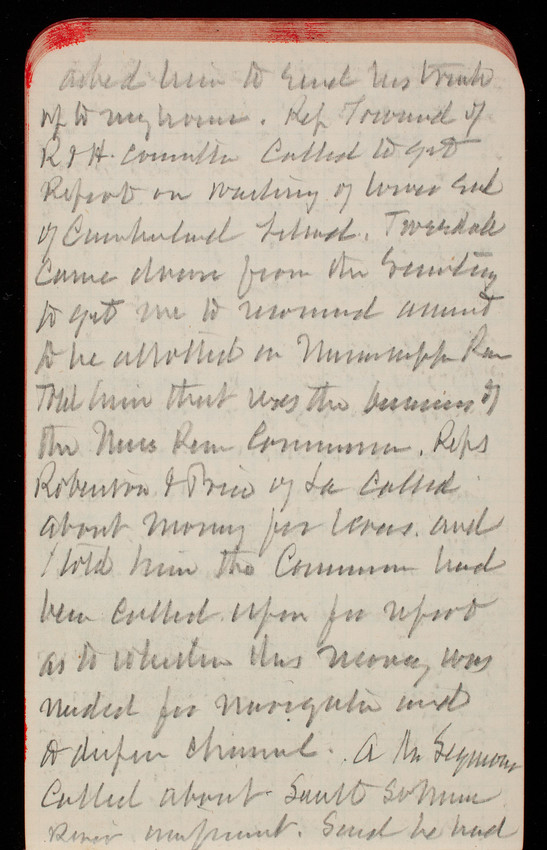 asked him to send his trunk
up to my house. Rep Townsend of
R & H. Committee Called to get
Report on washing of lower End
of Cumberland Island. Tweedale
Came down from the Secretary
to get me to recommend amount
to be allotted on Mississippi River
Told him that was the business of
the Miss River Commission. Reps
Robertson & Price of La Called
about Money for levees. and
I told him the Commission had
been called upon for report
as to whether this money was
needed for navigation and
to deepen channel. A Mr Seymour
Called about Sault
River. Said he had